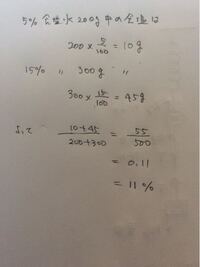 5% 食塩水 200g 中の食塩は
200 × 5/100 = 10g
15% 〃 300g 〃
300 × 15/100 = 45g
よって 10+45/200+300 = 55/500
= 0.11
= 11%